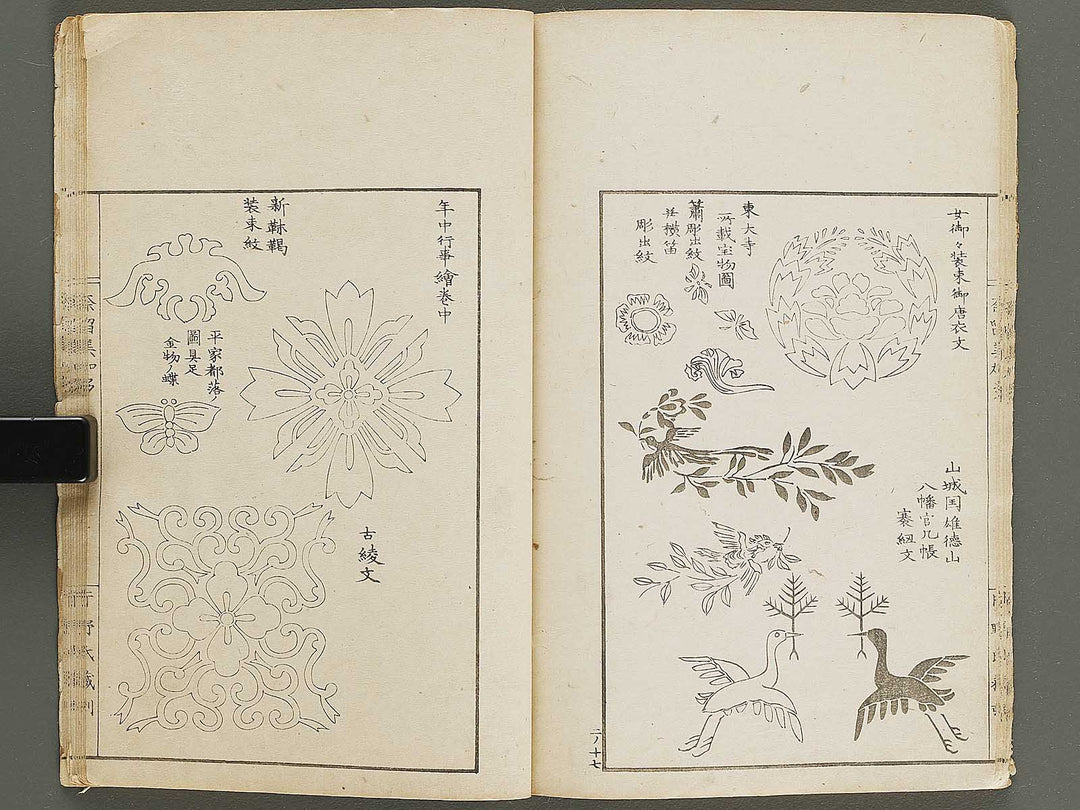 女御々装束御唐衣文
東大寺
所載宝物圖
簫彫出紋
并横笛
彫出紋
山城国雄德山
八幡宮几帳
裹紐文
二ノ十七
年中行事繪巻中
新靺鞨
装束紋
平家都落
圖具足
金物ノ蝶
古綾文